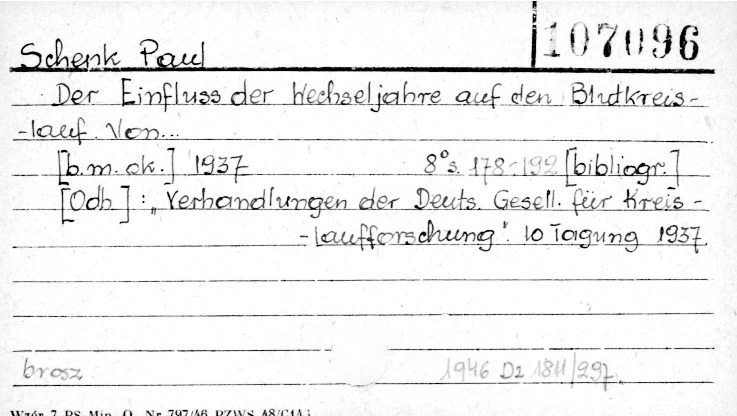 Schenk Paul
107096
Der Einfluss der Wechseljahre auf den Blutkreis-
-lauf. Von...
[b.m.ok.] 1937 8° s. 178-192 [bibliogr.]
[Odb.] : „Verhandlungen der Deuts. Gesell. für Kreis-
-laufforschung". 10 Tagung 1937.
brosz 1946 Dz 1811/297.
Wzór 7 PS Min. O. Nr 797/46 PZWS